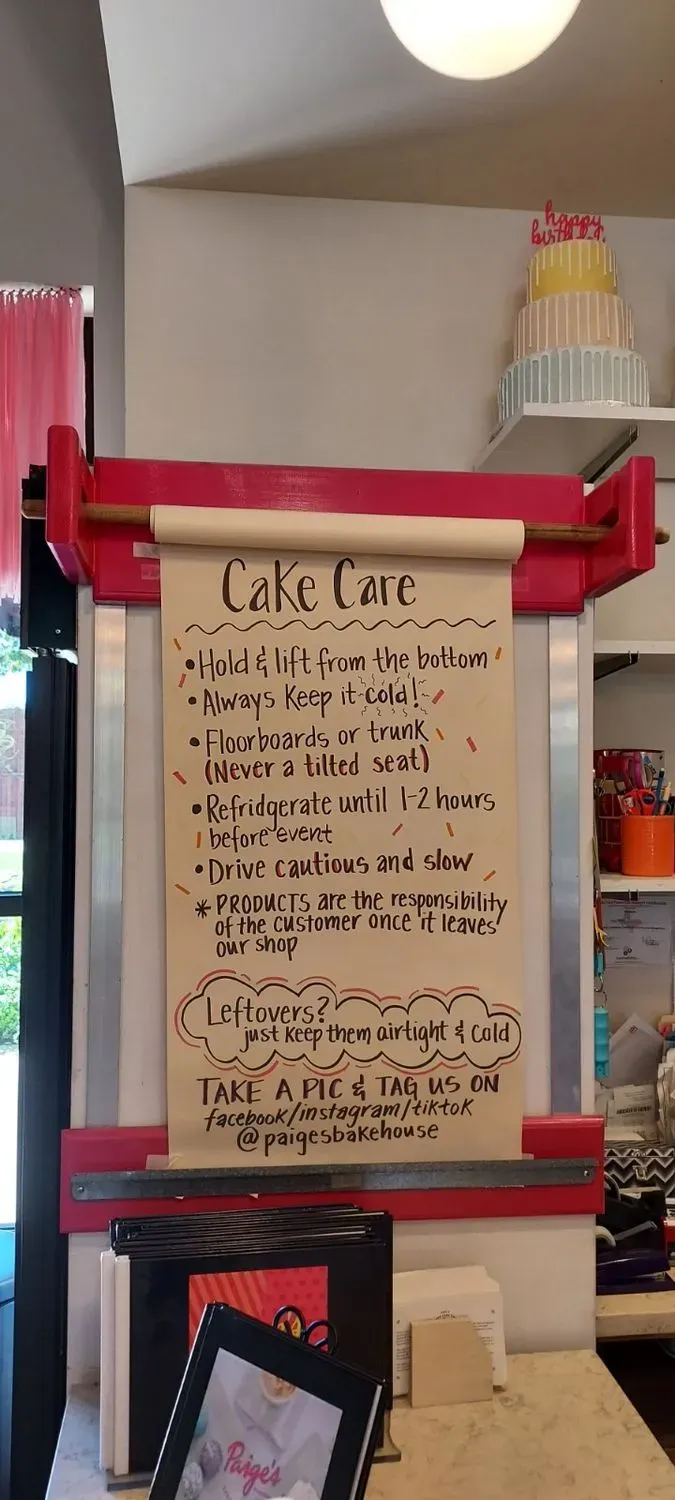 happy
Cake Care
•Hold & lift from the bottom
•Always Keep it cold!
•Floorboards or trunk
(Never a tilted seat)
•Refridgerate until 1-2 hours
before event
•Drive cautious and slow
* PRODUCTS are the responsibility
of the customer once it leaves
our shop
Leftovers?
just keep them airtight & cold
TAKE A PIC & TAG US ON
facebook/instagram/tiktok
@paigesbakehouse
Paige's